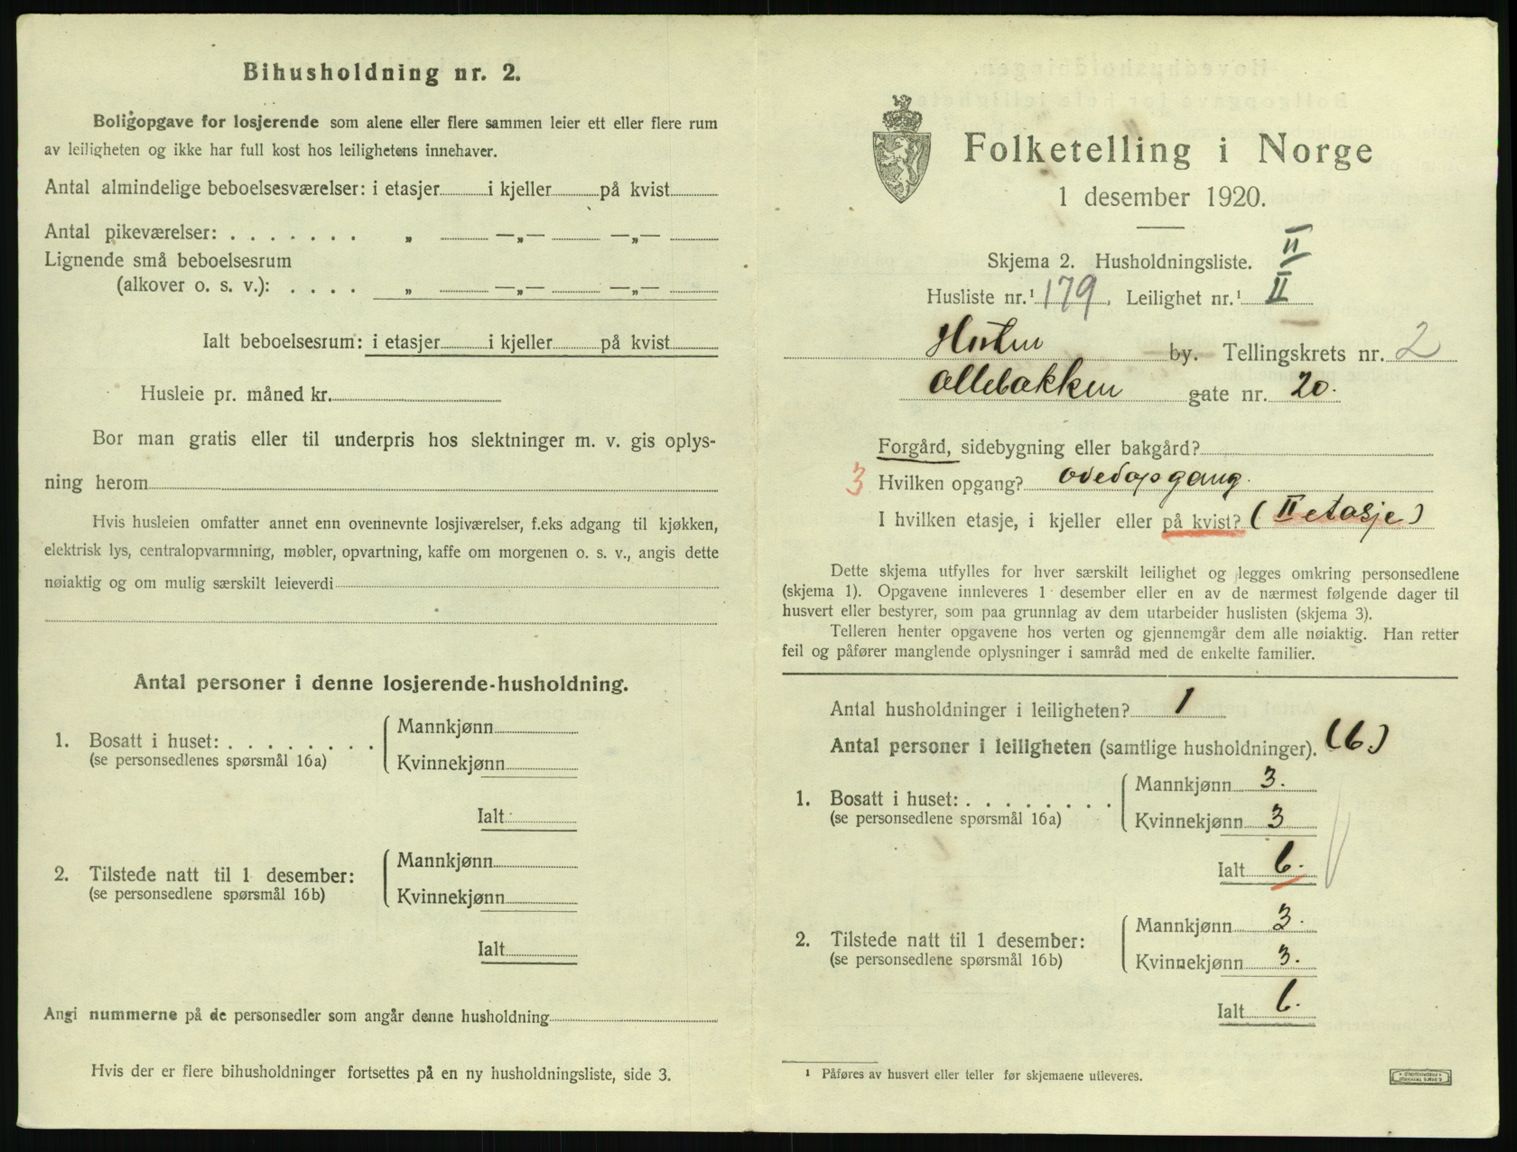 Bihusholdning nr. 2.
Boligopgave for losjerende som alene eller flere sammen leier ett eller flere rum
av leiligheten og ikke har full kost hos leilighetens innehaver.
Antal almindelige beboelsesværelser: i etasjer i kjeller på kvist
Antal pikeværelser: . . . . . . . „ —„— —„—
Lignende små beboelsesrum
(alkover o. s. v.): . . . . „ —„— —„—
Ialt beboelsesrum: i etasjer i kjeller på kvist
Husleie pr. måned kr.
Bor man gratis eller til underpris hos slektninger m. v. gis oplys-
ning herom
Hvis husleien omfatter annet enn ovennevnte losjiværelser, f.eks adgang til kjøkken,
elektrisk lys, centralopvarmning, møbler, opvartning, kaffe om morgenen o. s. v., angis dette
nøiaktig og om mulig særskilt leieverdi
Antal personer i denne losjerende-husholdning.
1. Bosatt i huset: . . . . . . . .
(se personsedlenes spørsmål 16a)
Mannkjønn
Kvinnekjønn
Ialt
2. Tilstede natt til 1 desember:
(se personsedlene spørsmål 16b)
Mannkjønn
Kvinnekjønn
Ialt
Angi nummerne på de personsedler som angår denne husholdning
Hvis der er flere bihusholdninger fortsettes på en ny husholdningsliste, side 3.
Folketelling i Norge
1 desember 1920.
II
Skjema 2. Husholdningsliste.
Husliste nr.¹ 179. Leilighet nr.¹ II
by. Tellingskrets nr. 2
Ollebakken gate nr. 20.
Forgård, sidebygning eller bakgård?
3 Hvilken opgang? ovedopgang.
I hvilken etasje, i kjeller eller på kvist? (II etasje)
Dette skjema utfylles for hver særskilt leilighet og legges omkring personsedlene
(skjema 1). Opgavene innleveres 1 desember eller en av de nærmest følgende dager til
husvert eller bestyrer, som paa grunnlag av dem utarbeider huslisten (skjema 3).
Telleren henter opgavene hos verten og gjennemgår dem alle nøiaktig. Han retter
feil og påfører manglende oplysninger i samråd med de enkelte familier.
Antal husholdninger i leiligheten? 1
Antal personer i leiligheten (samtlige husholdninger). (6)
1. Bosatt i huset: . . . . . . . .
(se personsedlene spørsmål 16a)
Mannkjønn 3.
Kvinnekjønn 3
Ialt 6.
2. Tilstede natt til 1 desember:
(se personsedlene spørsmål 16b)
Mannkjønn 3.
Kvinnekjønn 3.
Ialt 6.
¹ Påføres av husvert eller teller før skjemaene utleveres.